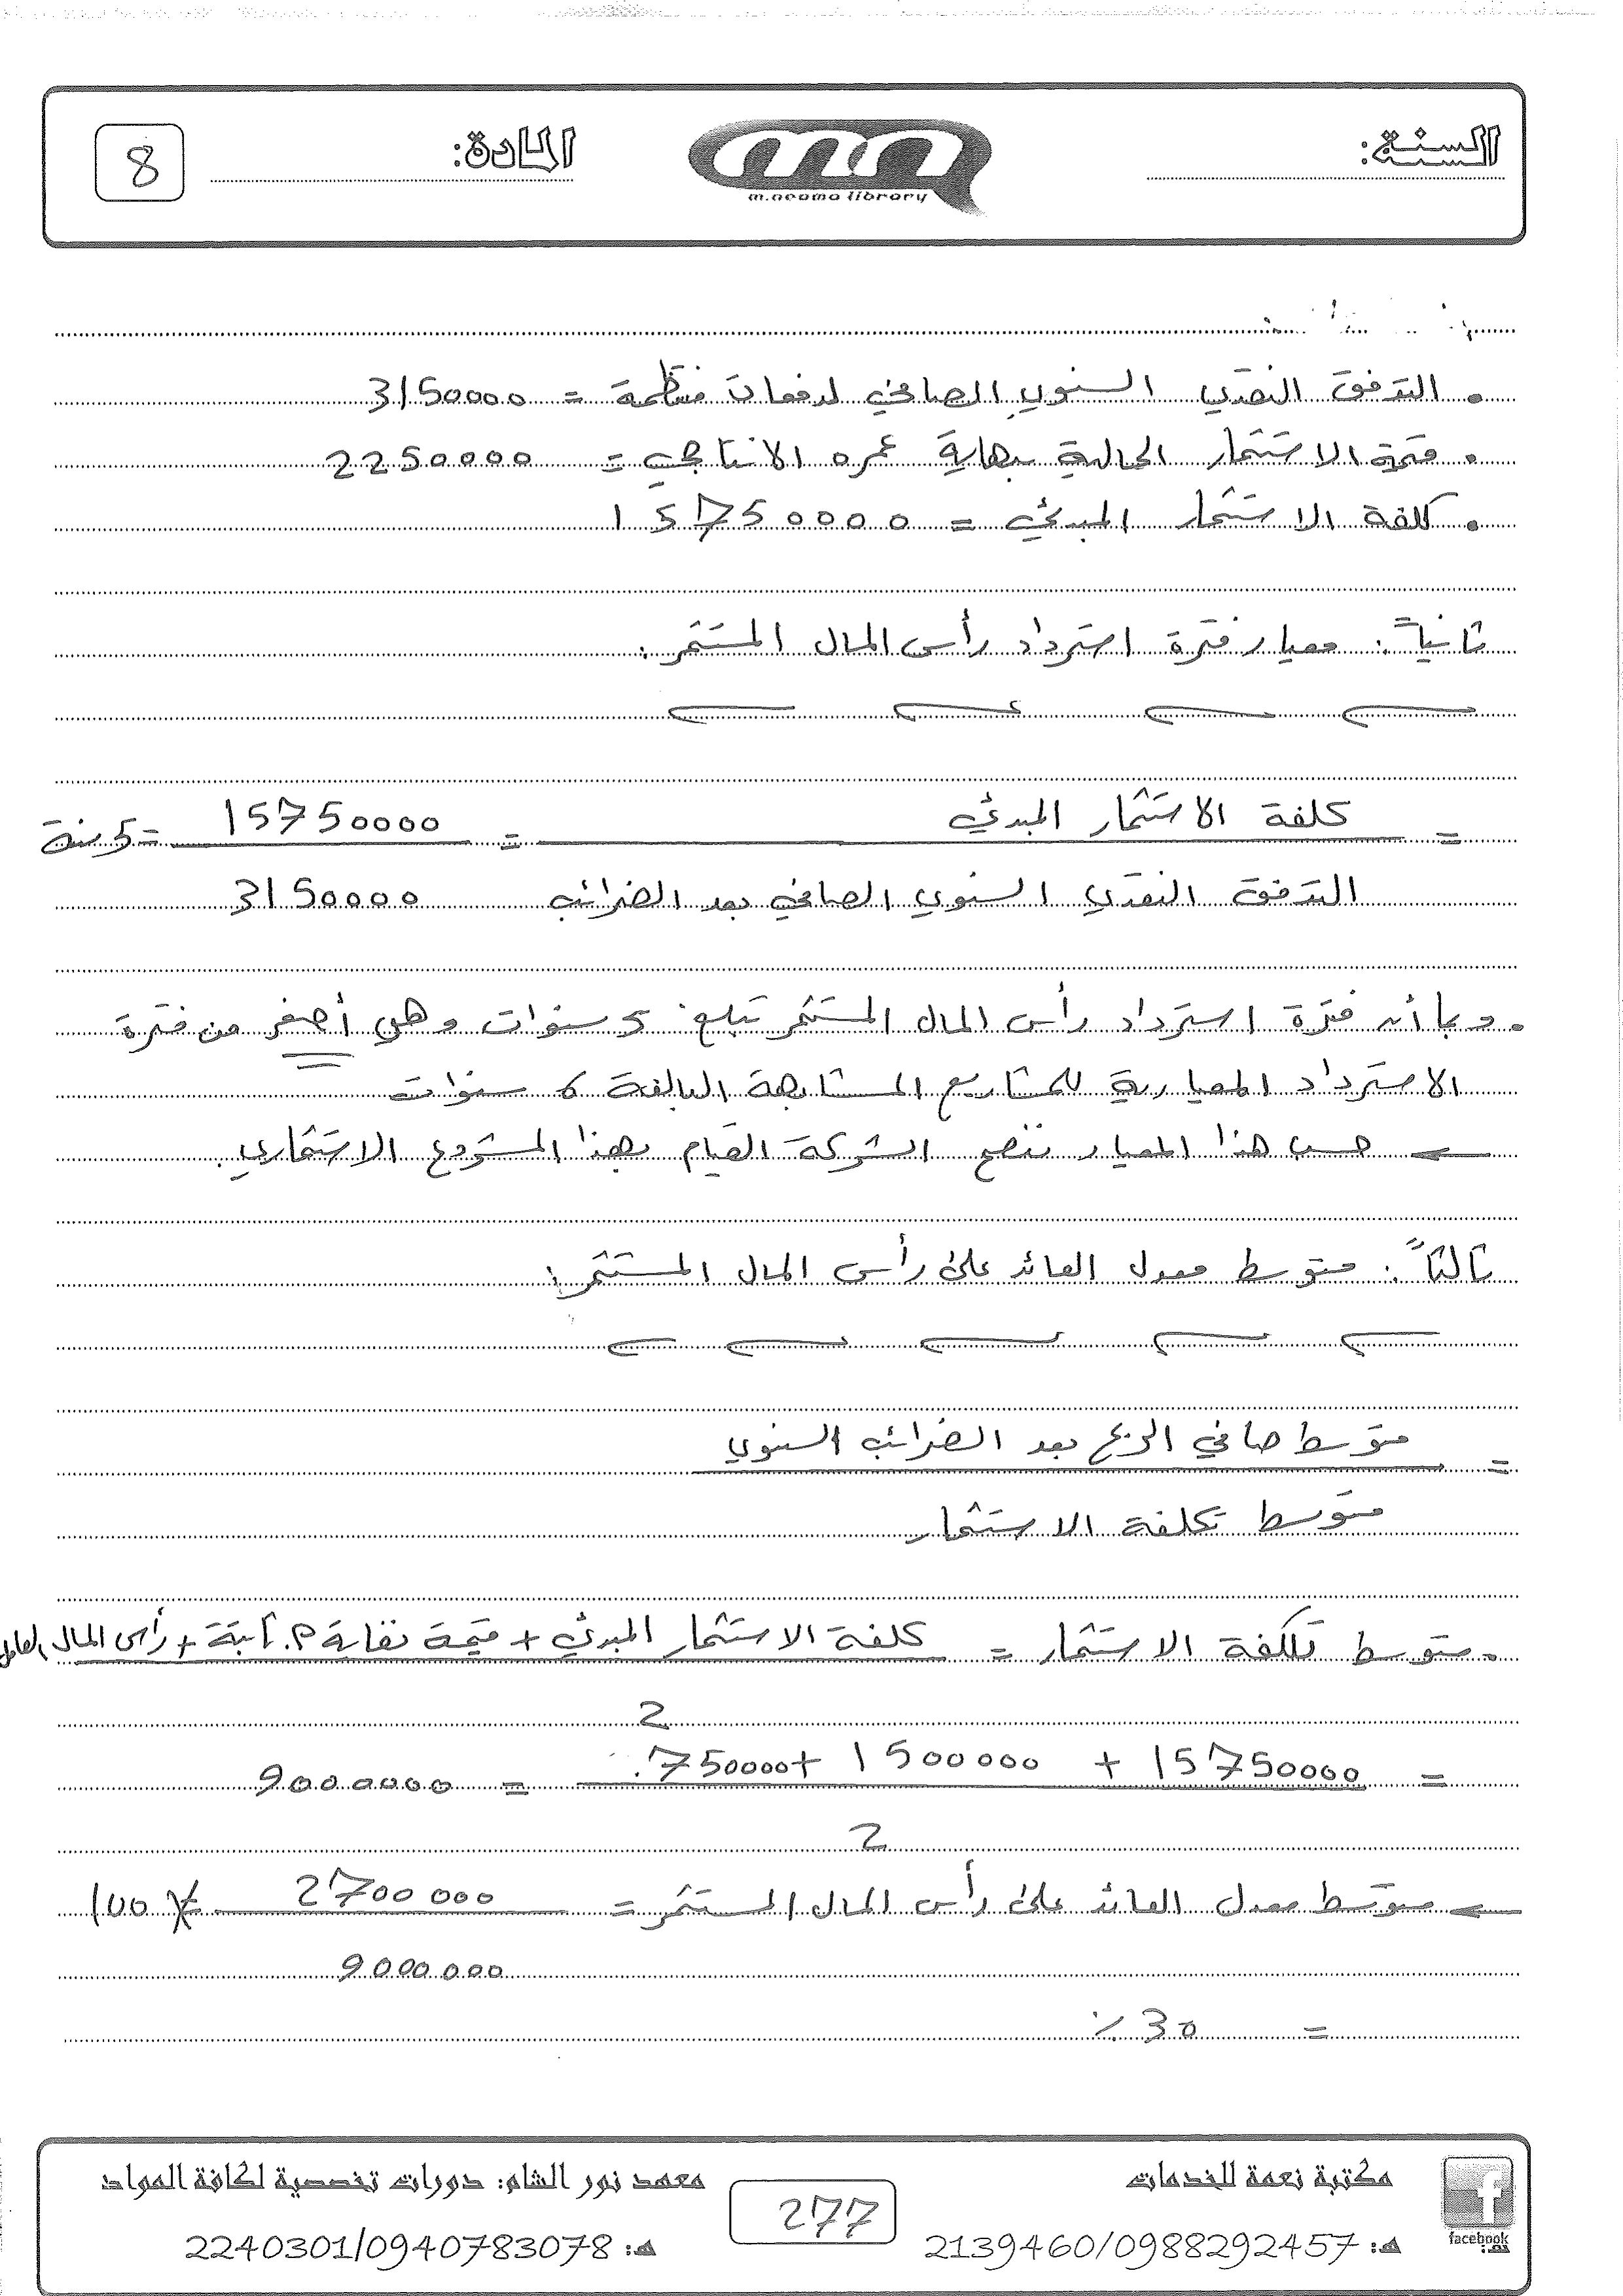 السنة:
m.neama library
المادة:
8
• التدفق النقدي السنوي الصافي لدفعات منتظمة = 3150000
• قيمة الاستثمار الحالية بنهاية عمره الانتاجي = 2250000
• كلفة الاستثمار المبدئي = 15750000
ثانياً: معيار فترة استرداد رأس المال المستثمر:
= كلفة الاستثمار المبدئي = 15750000 = 5 سنة
التدفق النقدي السنوي الصافي بعد الضرائب 3150000
• وبما أن فترة استرداد رأس المال المستثمر تبلغ 5 سنوات وهي أصغر من فترة
الاسترداد المعيارية للمشاريع المشابهة البالغة 6 سنوات
← حسب هذا المعيار ننصح الشركة القيام بهذا المشروع الاستثماري.
ثالثاً: متوسط معدل العائد على رأس المال المستثمر:
= متوسط صافي الربح بعد الضرائب السنوي
متوسط تكلفة الاستثمار
• متوسط تكلفة الاستثمار = كلفة الاستثمار المبدئي + قيمة نفاية م. ثابتة + رأس المال العامل
2
= 15750000 + 1500000 + 750000 = 9000000
2
← متوسط معدل العائد على رأس المال المستثمر = 2700000 × 100
9000000
= 30 %
مكتبة نعمة للخدمات
معهد نور الشام: دورات تخصصية لكافة المواد
277
facebook
هـ: 2139460/0988292457
هـ: 2240301/0940783078